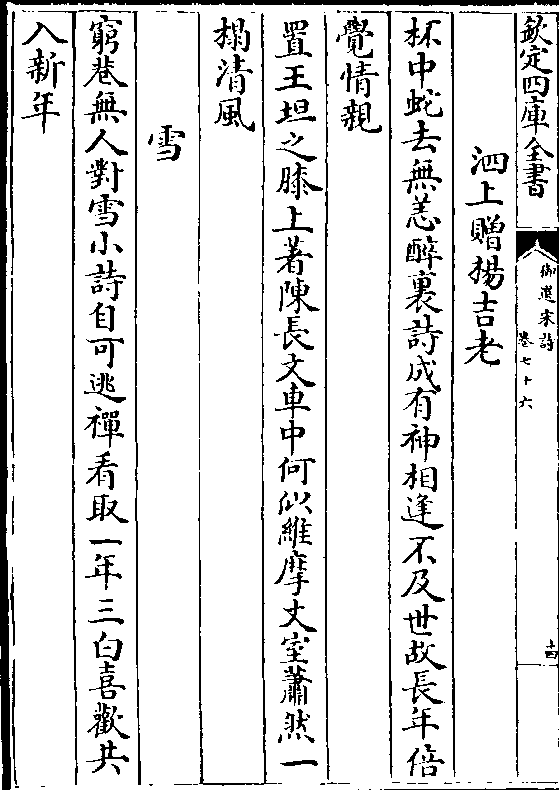 欽定四庫全書
御選宋詩
卷七十六
十四
泗上贈楊吉老
杯中蛇去無恙醉裏詩成有神相逢不及世故長年倍
覺情親
置王坦之膝上著陳長文車中何似維摩丈室蕭然一
榻清風
雪
窮巷無人對雪小詩自可逃禪看取一年三白喜歡共
入新年